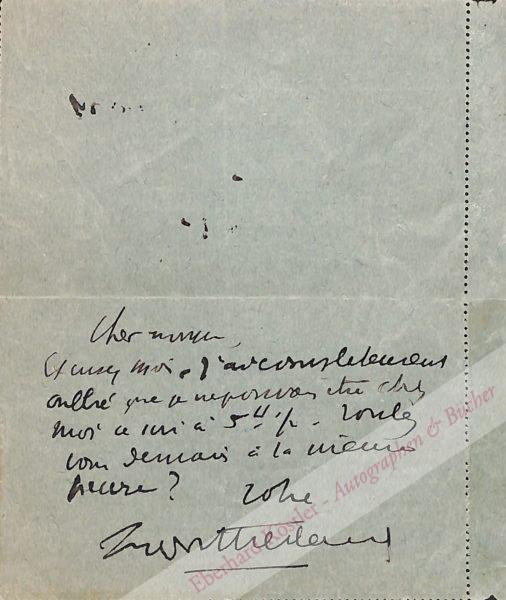 Cher monsieur,
Excusez moi. J'avais complètement
oublié que je ne pouvais être chez
moi ce soir à 5 h ½. Voulez
vous demain à la même
heure ?
Votre
Montherlant
Eberhard Köstler - Autographen & Bücher